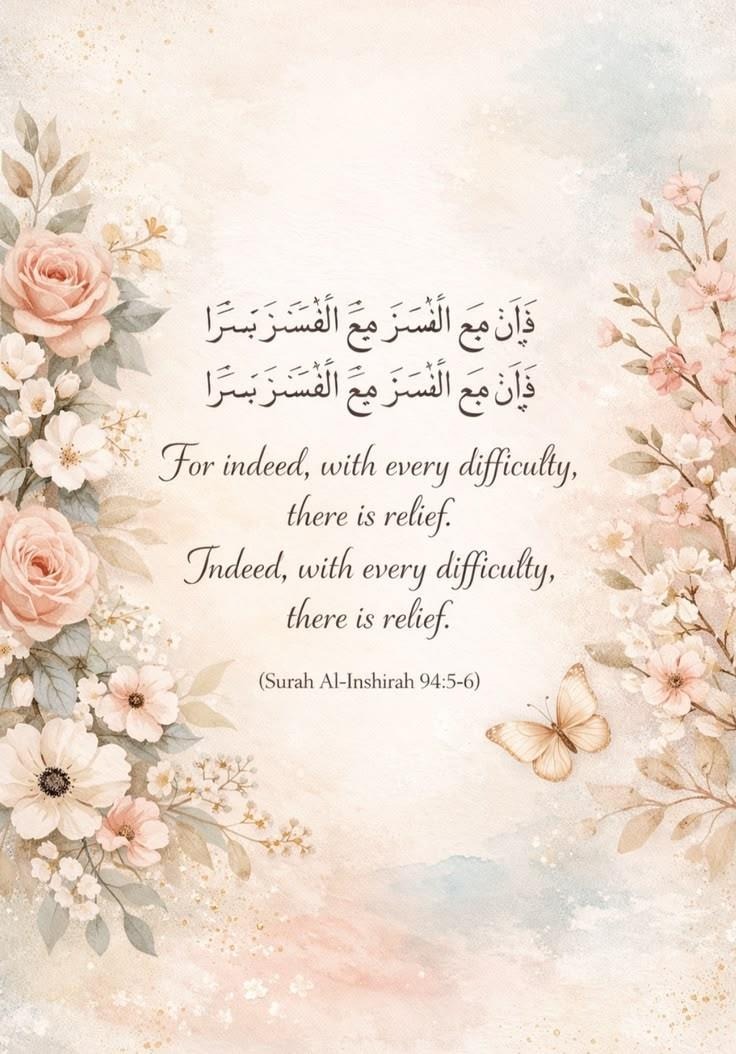 فَإَنْ مَع الَفْسَنَرَ مِعَّ الَفْسَنَرَ بَسَرًا
فَإَنْ مَع الَفْسَنَرَ مِعَّ الَفْسَنَرَ بَسَرًا
For indeed, with every difficulty,
there is relief.
Indeed, with every difficulty,
there is relief.
(Surah Al-Inshirah 94:5-6)